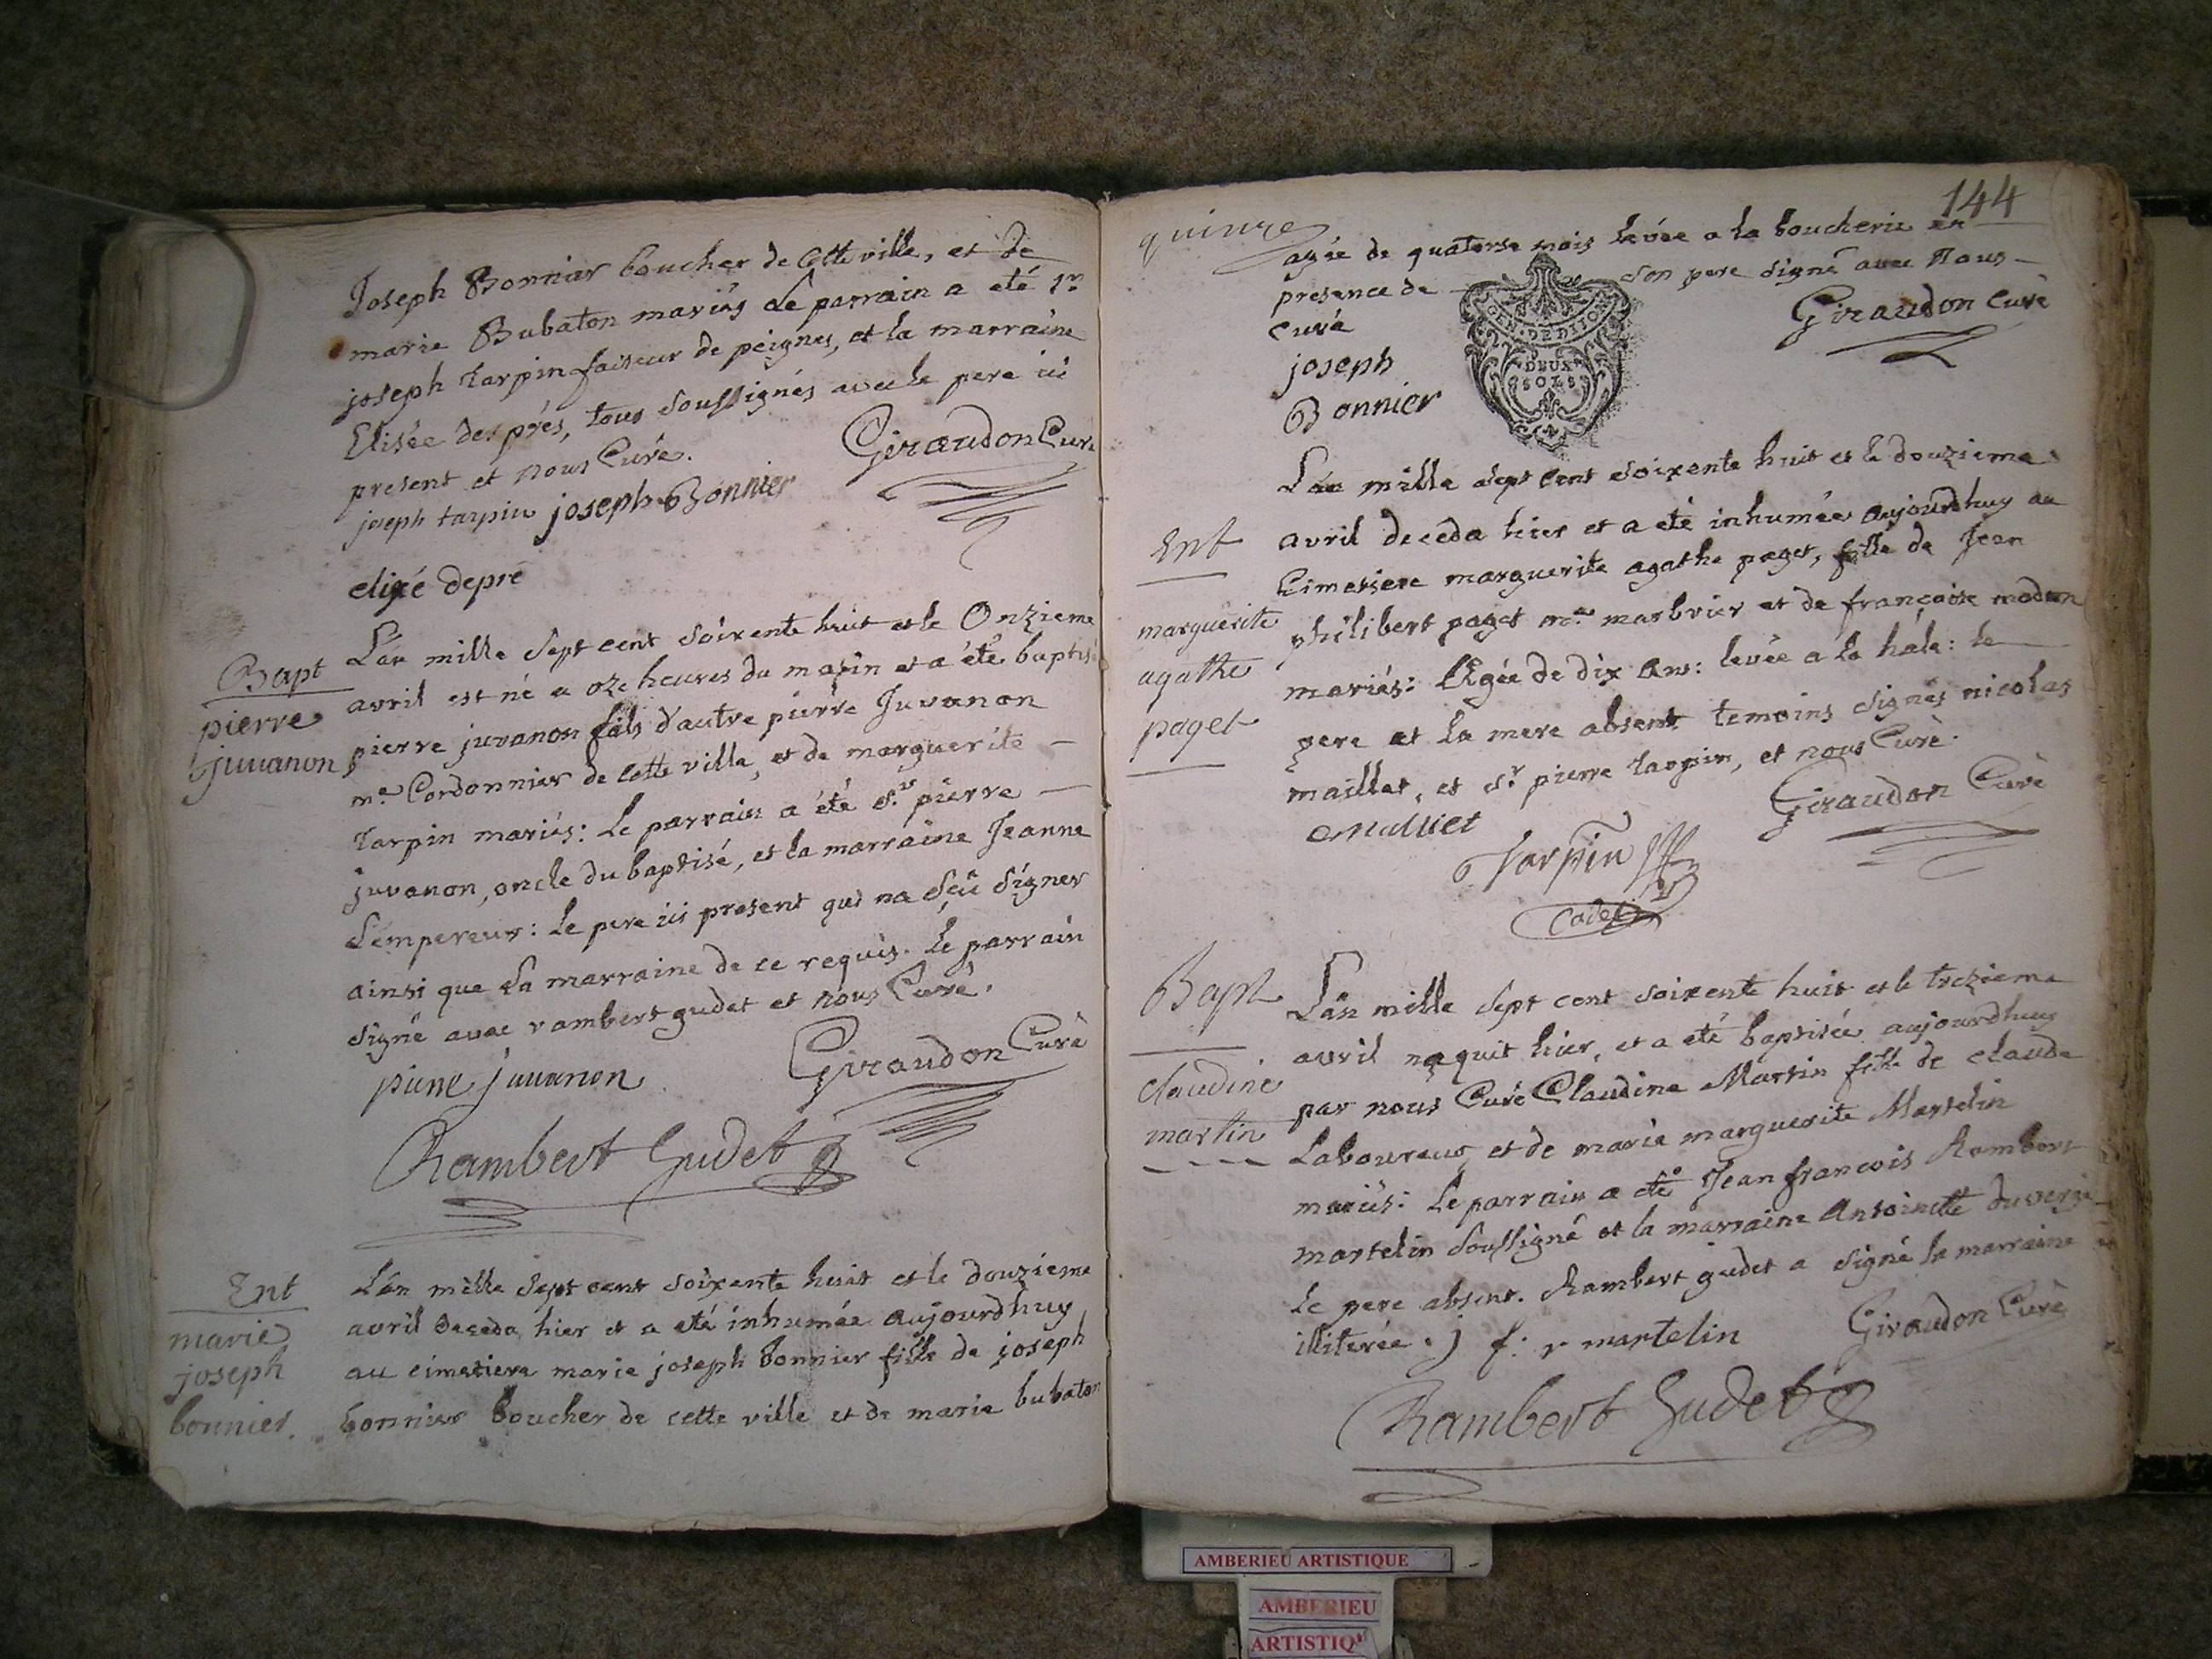 Joseph Bonnier boucher de Cette ville, et de
marie Bubaton mariés Le parrain a eté Sr
joseph Tarpin faiseur de peignes, et la marraine
Elisée des prés, tous soussignés avec le pere ici
present et nous Curé.
Giraudon Curé
joseph tarpin joseph Bonnier
elixé depré
Bapt
pierre
juvanon
L'an mille sept cent soixente huit et le Onzieme
avril est né a oze heures du matin et a été baptisé
pierre juvanon fils d'autre pierre Juvanon
me Cordonnier de Cette ville, et de marguerite
Tarpin mariés: Le parrain a été Sr pierre
juvanon, oncle du baptisé, et la marraine Jeanne
L'empereur: Le pere ici present qui na sçû signer
ainsi que La marraine de ce requis. Le parrain
signé avec rambert gudet et nous Curé.
pierre juvanon
Giraudon Curé
Rambert Gudet
Ent
marie
joseph
bonnier
L'an mille sept cent soixente huit et le douzieme
avril deceda hier et a eté inhumée aujourdhuy
au cimetiere marie joseph bonnier fille de joseph
bonnier boucher de cette ville et de marie bubaton
144
quinze
agée de quatorse mois levée a la boucherie en
presence de son pere signé avec Nous
curé
Giraudon Curé
joseph
Bonnier
GEN. DE DIJON
DEUX
SOLS
Ent
marguerite
agathe
paget
L'an mille sept cent soixente huit et le douzieme
avril deceda hier et a eté inhumée aujourdhuy au
Cimetiere marguerite agathe paget, fille de Jean
philibert paget me marbrier et de françoise
mariés: Agée de dix ans: levée a la hale: le
pere et La mere absent temoins signés nicolas
maillet, et Sr pierre tarpin, et nous Curé.
Giraudon Curé
Tarpin
Cadet
Bapt
claudine
martin
L'an mille sept cent soixente huit et le trezieme
avril naquit hier, et a eté baptisée aujourdhuy
par nous Curé Claudine Martin fille de claude
Laboureur et de marie marguerite Martelin
mariés: Le parrain a eté Jean francois Rambert
martelin soussigné et la marraine Antoinette
Le pere absent. Rambert gudet a signé la marraine
illiterée. j f: r martelin
Giraudon Curé
Rambert Gudet
AMBERIEU ARTISTIQUE
AMBERIEU
ARTISTIQ